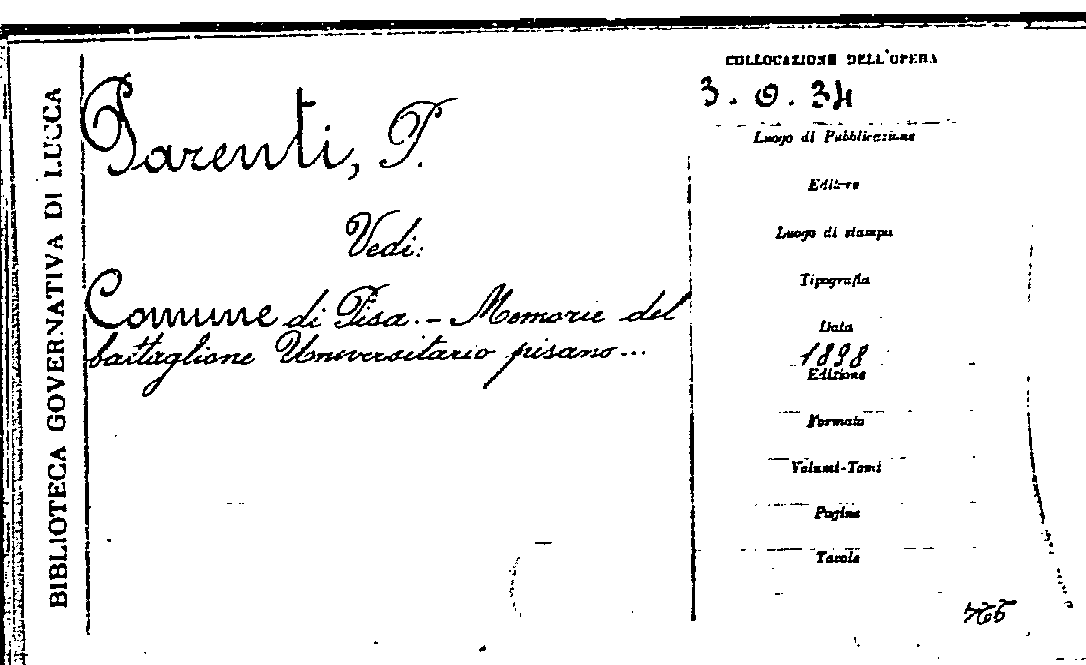 BIBLIOTECA GOVERNATIVA DI LUCCA
Parenti, P.
Vedi:
Comune di Pisa. - Memorie del
battaglione Universitario pisano...
COLLOCAZIONE DELL'OPERA
3. O. 34
Luogo di Pubblicazione
Editore
Luogo di stampa
Tipografia
Data
1898
Edizione
Formato
Volumi-Tomi
Pagine
Tavole